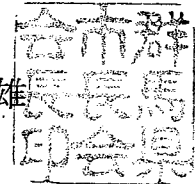 雄
群馬県
市長会
会長印